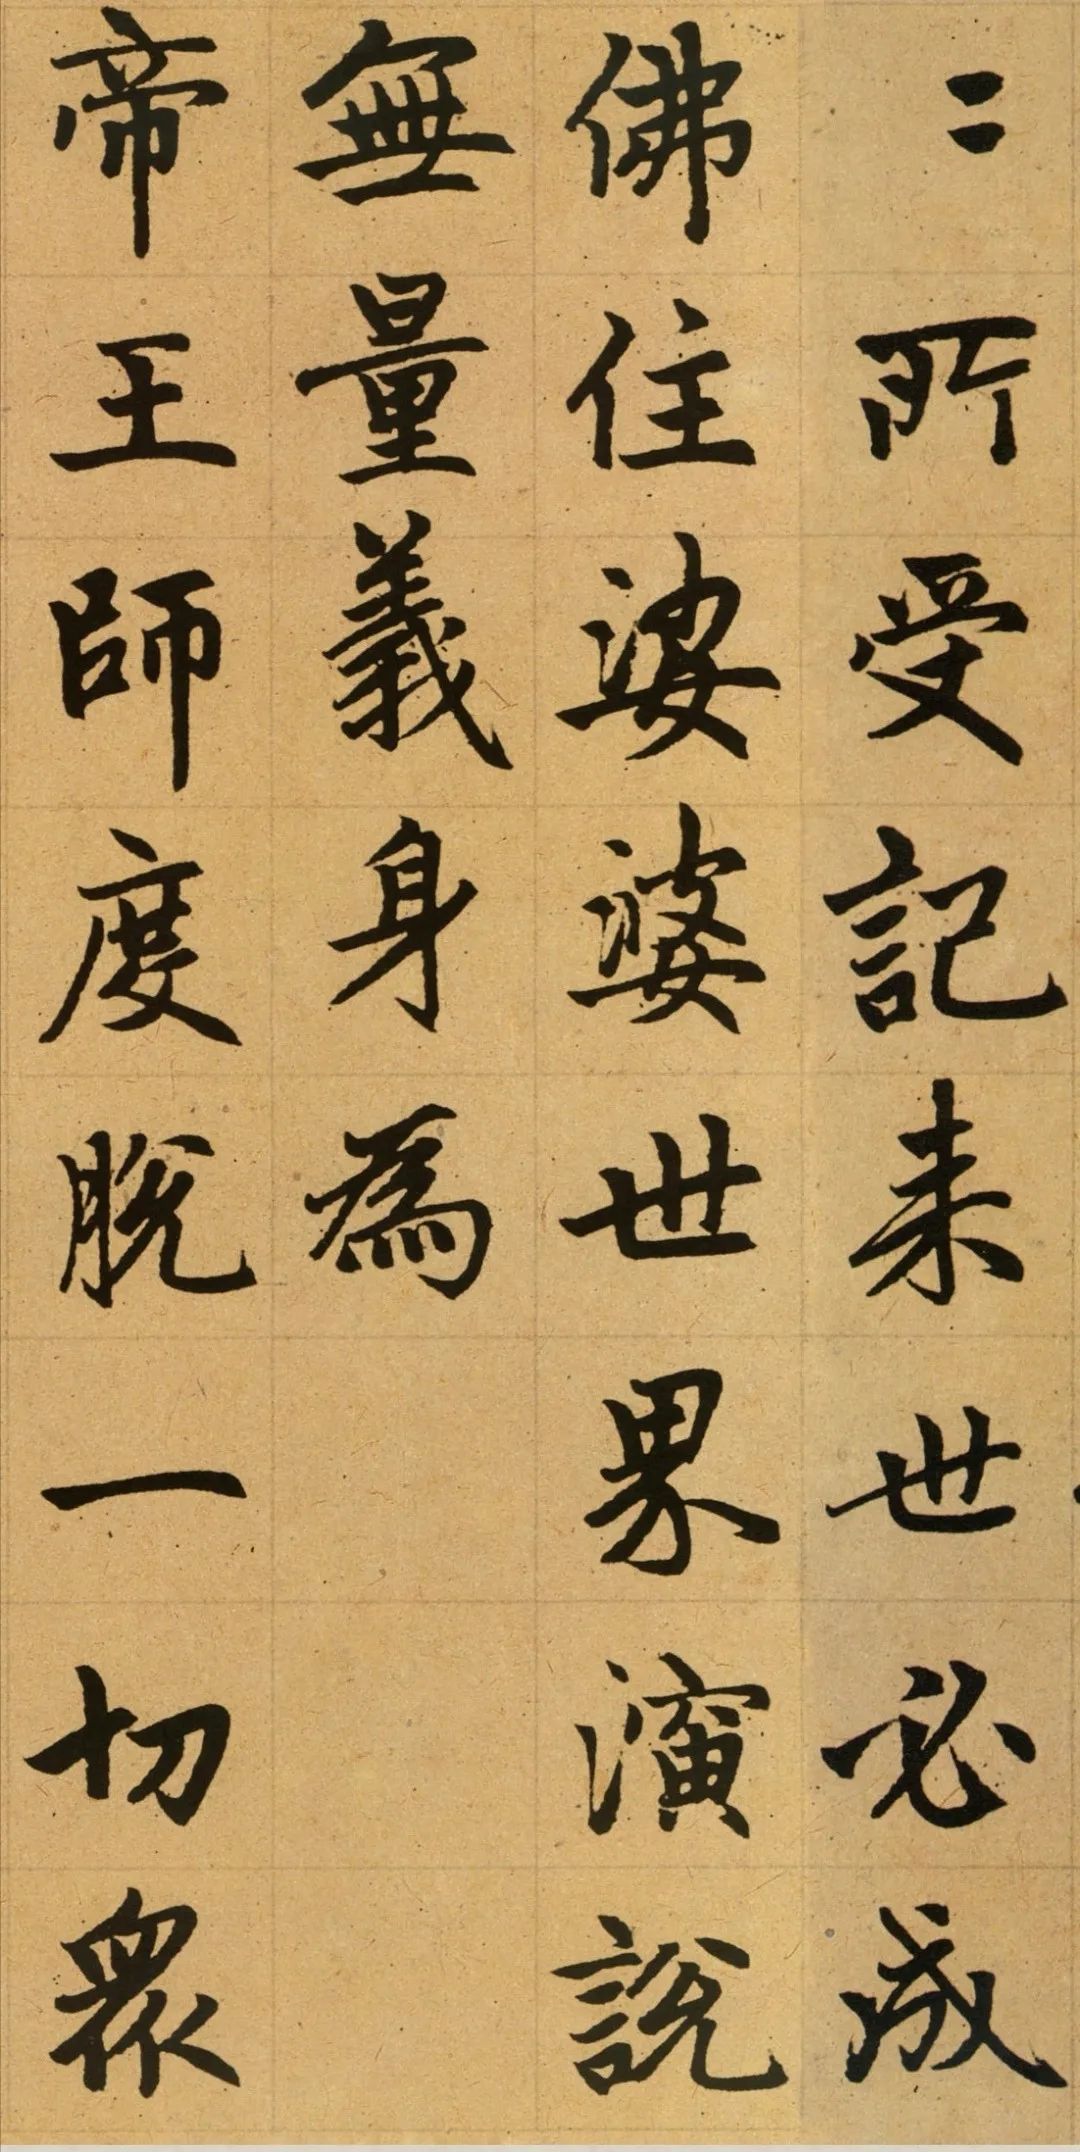 〻所受記来世必成
佛住娑婆世界演說
無量義身為
帝王師度脫一切衆